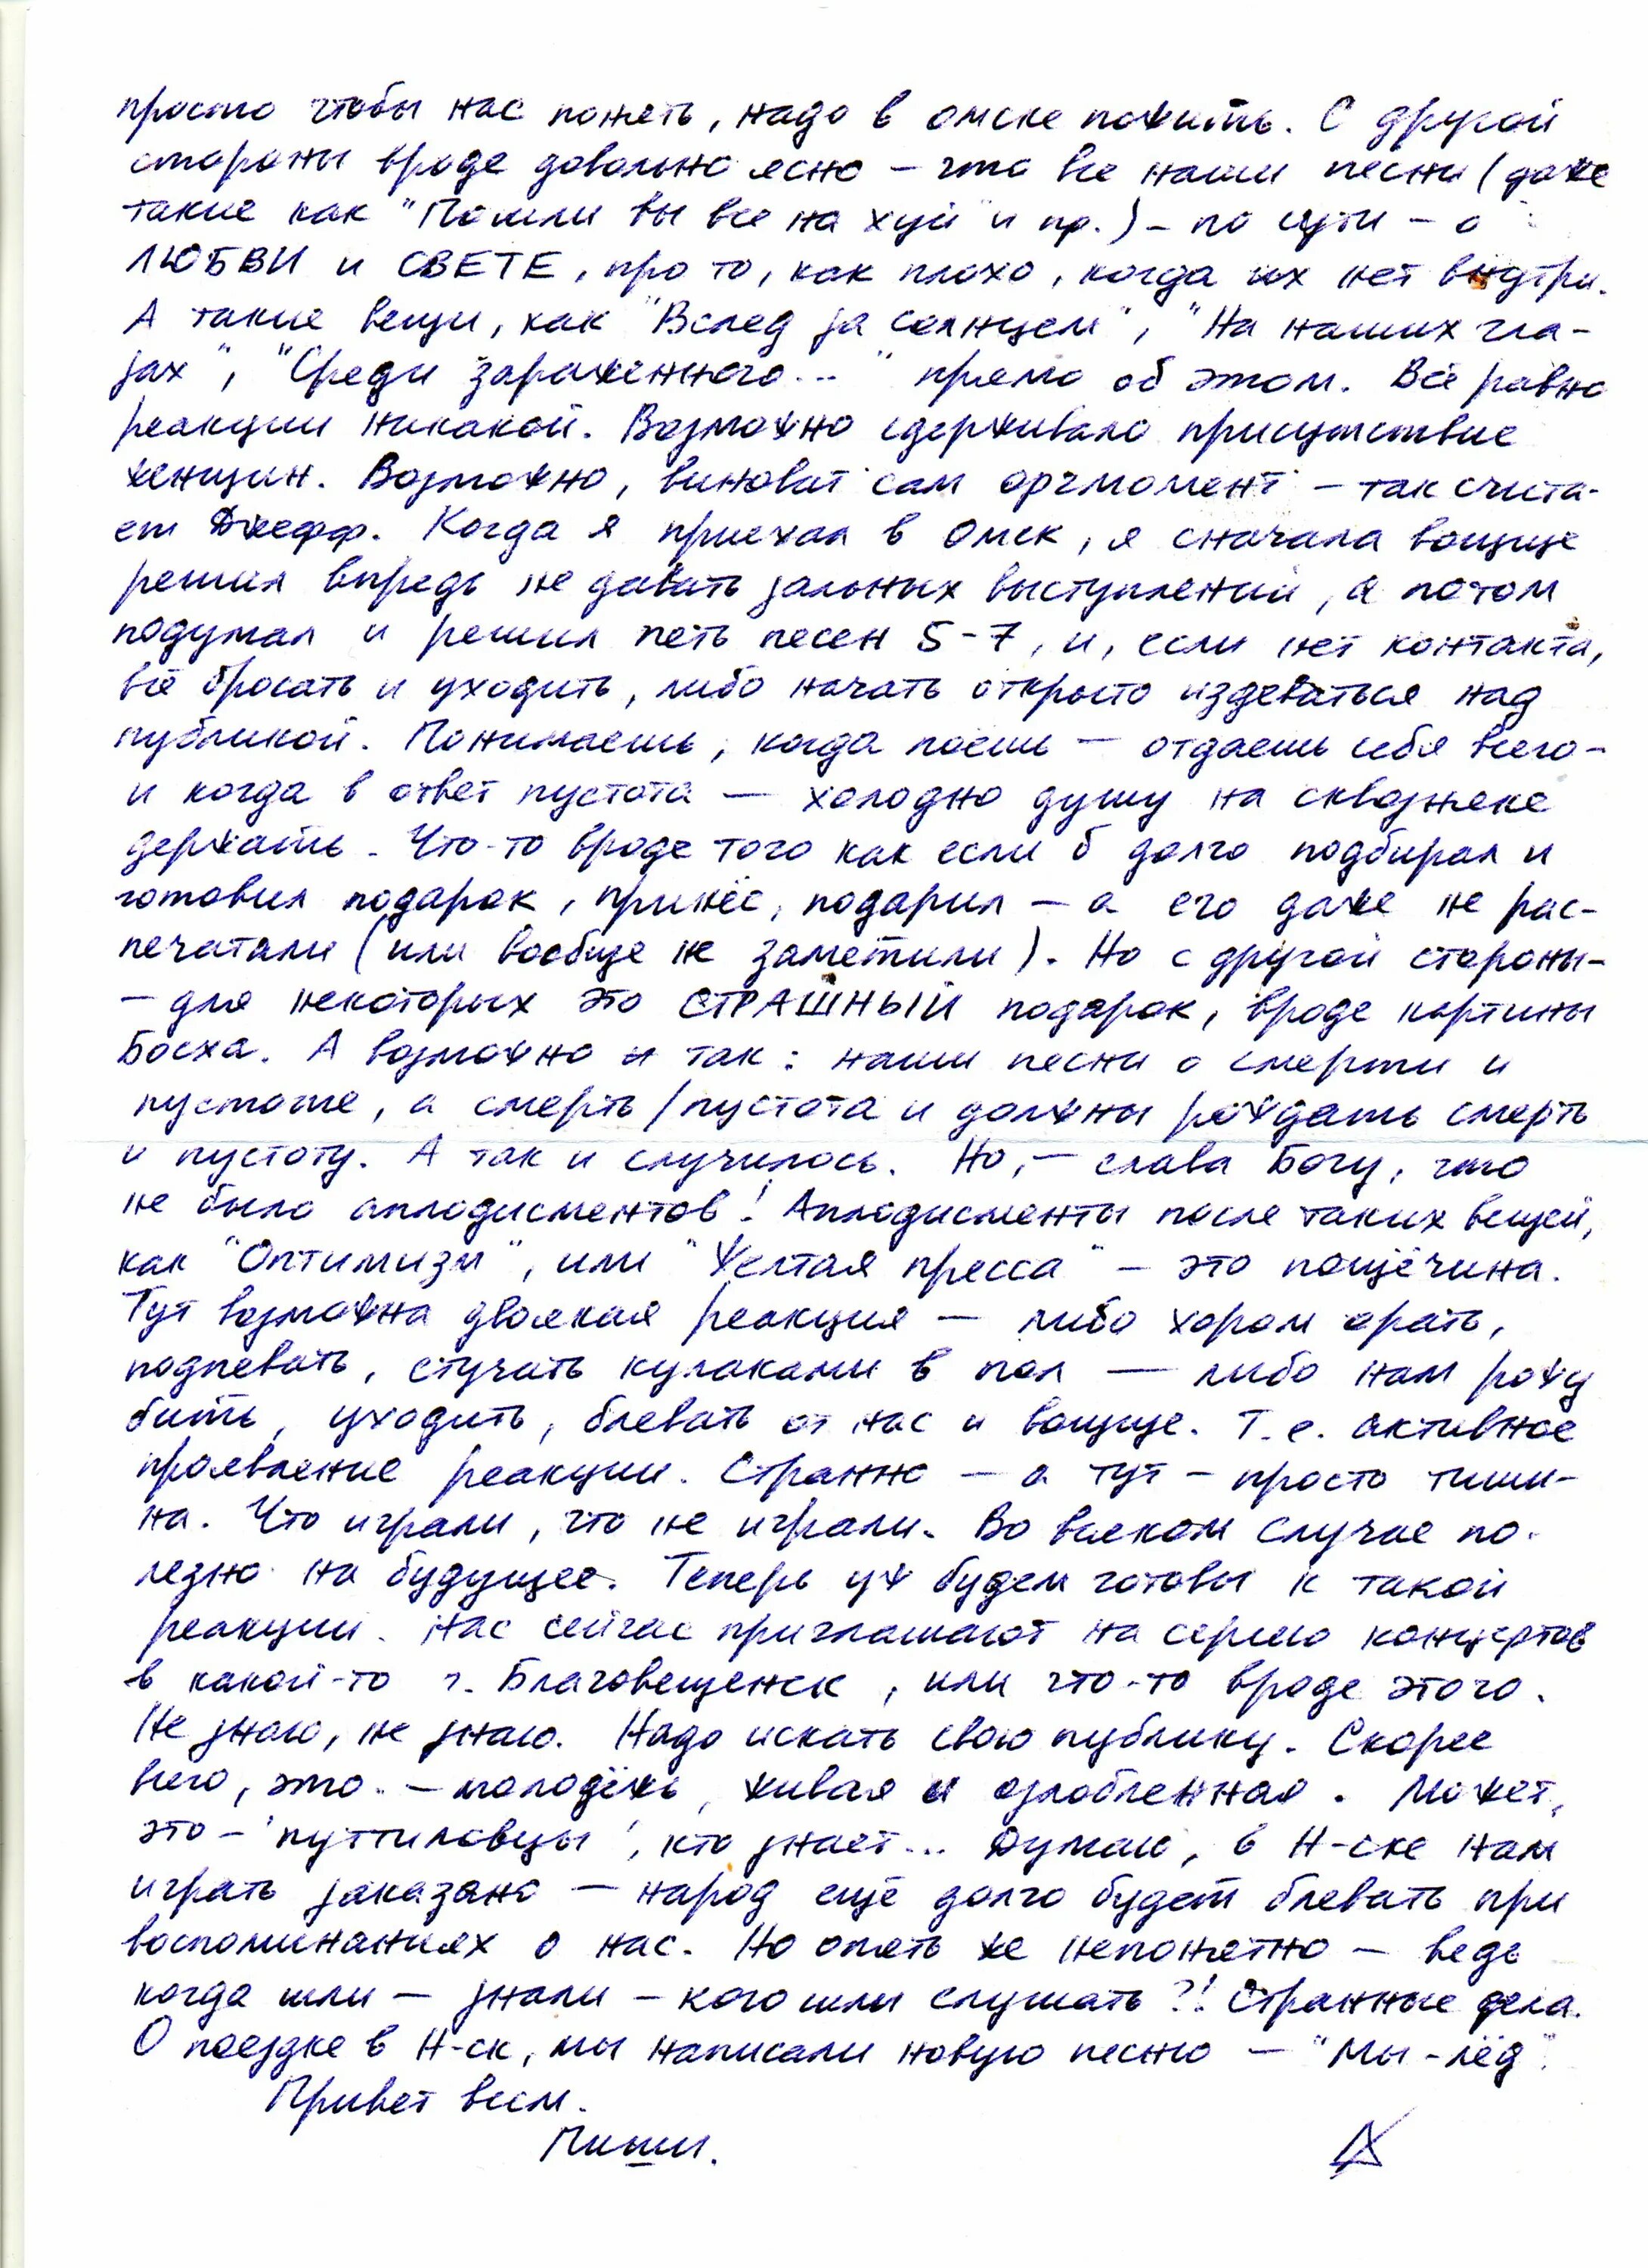 просто чтобы нас понять, надо в Омске пожить. С другой
стороны вроде довольно ясно – что все наши песни (даже
такие как "Пошли вы все на хуй" и пр.) – по сути – о
ЛЮБВИ и СВЕТЕ, про то, как плохо, когда их нет внутри.
А такие вещи, как "Вслед за солнцем", "На наших гла-
зах", "Среди заражённого..." прямо об этом. Всё равно
реакции никакой. Возможно сдерживало присутствие
женщин. Возможно, виноват сам оргмомент – так счита-
ет Джефф. Когда я приехал в Омск, я сначала ваще
решил впредь не давать зальных выступлений, а потом
подумал и решил петь песен 5-7, и, если нет контакта,
всё бросать и уходить, либо начать открыто издеваться над
публикой. Понимаешь, когда поёшь – отдаешь себя всего –
и когда в ответ пустота – холодно душу на сквозняке
держать. Что-то вроде того как если б долго подбирал и
готовил подарок, принёс, подарил – а его даже не рас-
печатали (или вообще не заметили). Но с другой стороны –
– для некоторых это СТРАШНЫЙ подарок, вроде картины
Босха. А возможно и так: наши песни о смерти и
пустоте, а смерть/пустота и должны рождать смерть
и пустоту. А так и случилось. Но, – слава Богу, что
не было аплодисментов! Аплодисменты после таких вещей,
как "Оптимизм", или "Желтая пресса" – это пощёчина.
Тут возможна двоякая реакция – либо хором орать,
подпевать, стучать кулаками в пол – либо нам рожу
бить, уходить, блевать от нас и ваще. Т.е. активное
проявление реакции. Странно – а тут – просто тиши-
на. Что играли, что не играли. Во всяком случае по-
лезно на будущее. Теперь уж будем готовы к такой
реакции. Нас сейчас приглашают на серию концертов
в какой-то г. Благовещенск, или что-то вроде этого.
Не знаю, не знаю. Надо искать свою публику. Скорее
всего, это – молодёжь, живая и озлобленная. Может,
это – "путтиловцы", кто знает... Думаю, в Н-ске нам
играть заказано – народ ещё долго будет блевать при
воспоминаниях о нас. Но опять же непонятно – ведь
когда шли – знали – кого шли слушать?! Странные дела.
О поездке в Н-ск, мы написали новую песню – "Мы-лёд".
Привет всем.
Пиши.